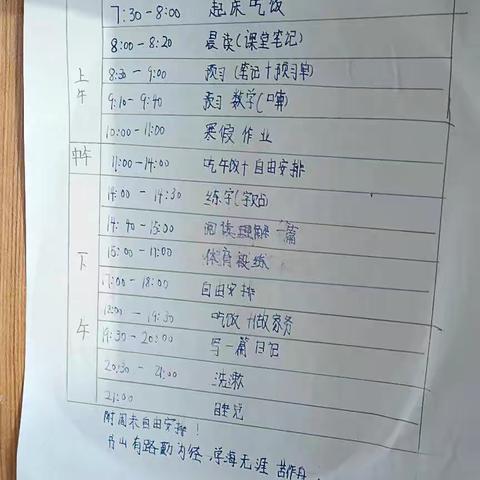 7:30-8:00 起床吃饭
8:00-8:20 晨读(课堂笔记)
上午
8:30-9:00 预习(笔记+预习单)
9:10-9:40 预习数学(口算)
10:00-11:00 寒假作业
中午 11:00-14:00 吃午饭+自由安排
14:00-14:30 练字(字帖)
14:40-15:00 阅读理解一篇
下午
15:00-17:00 体育锻练
17:00-18:00 自由安排
18:00-19:30 吃饭+做家务
19:30-20:00 写一篇日记
20:30-21:00 洗漱
21:00 睡觉
附周末自由安排!
书山有路勤为径,学海无涯苦作舟